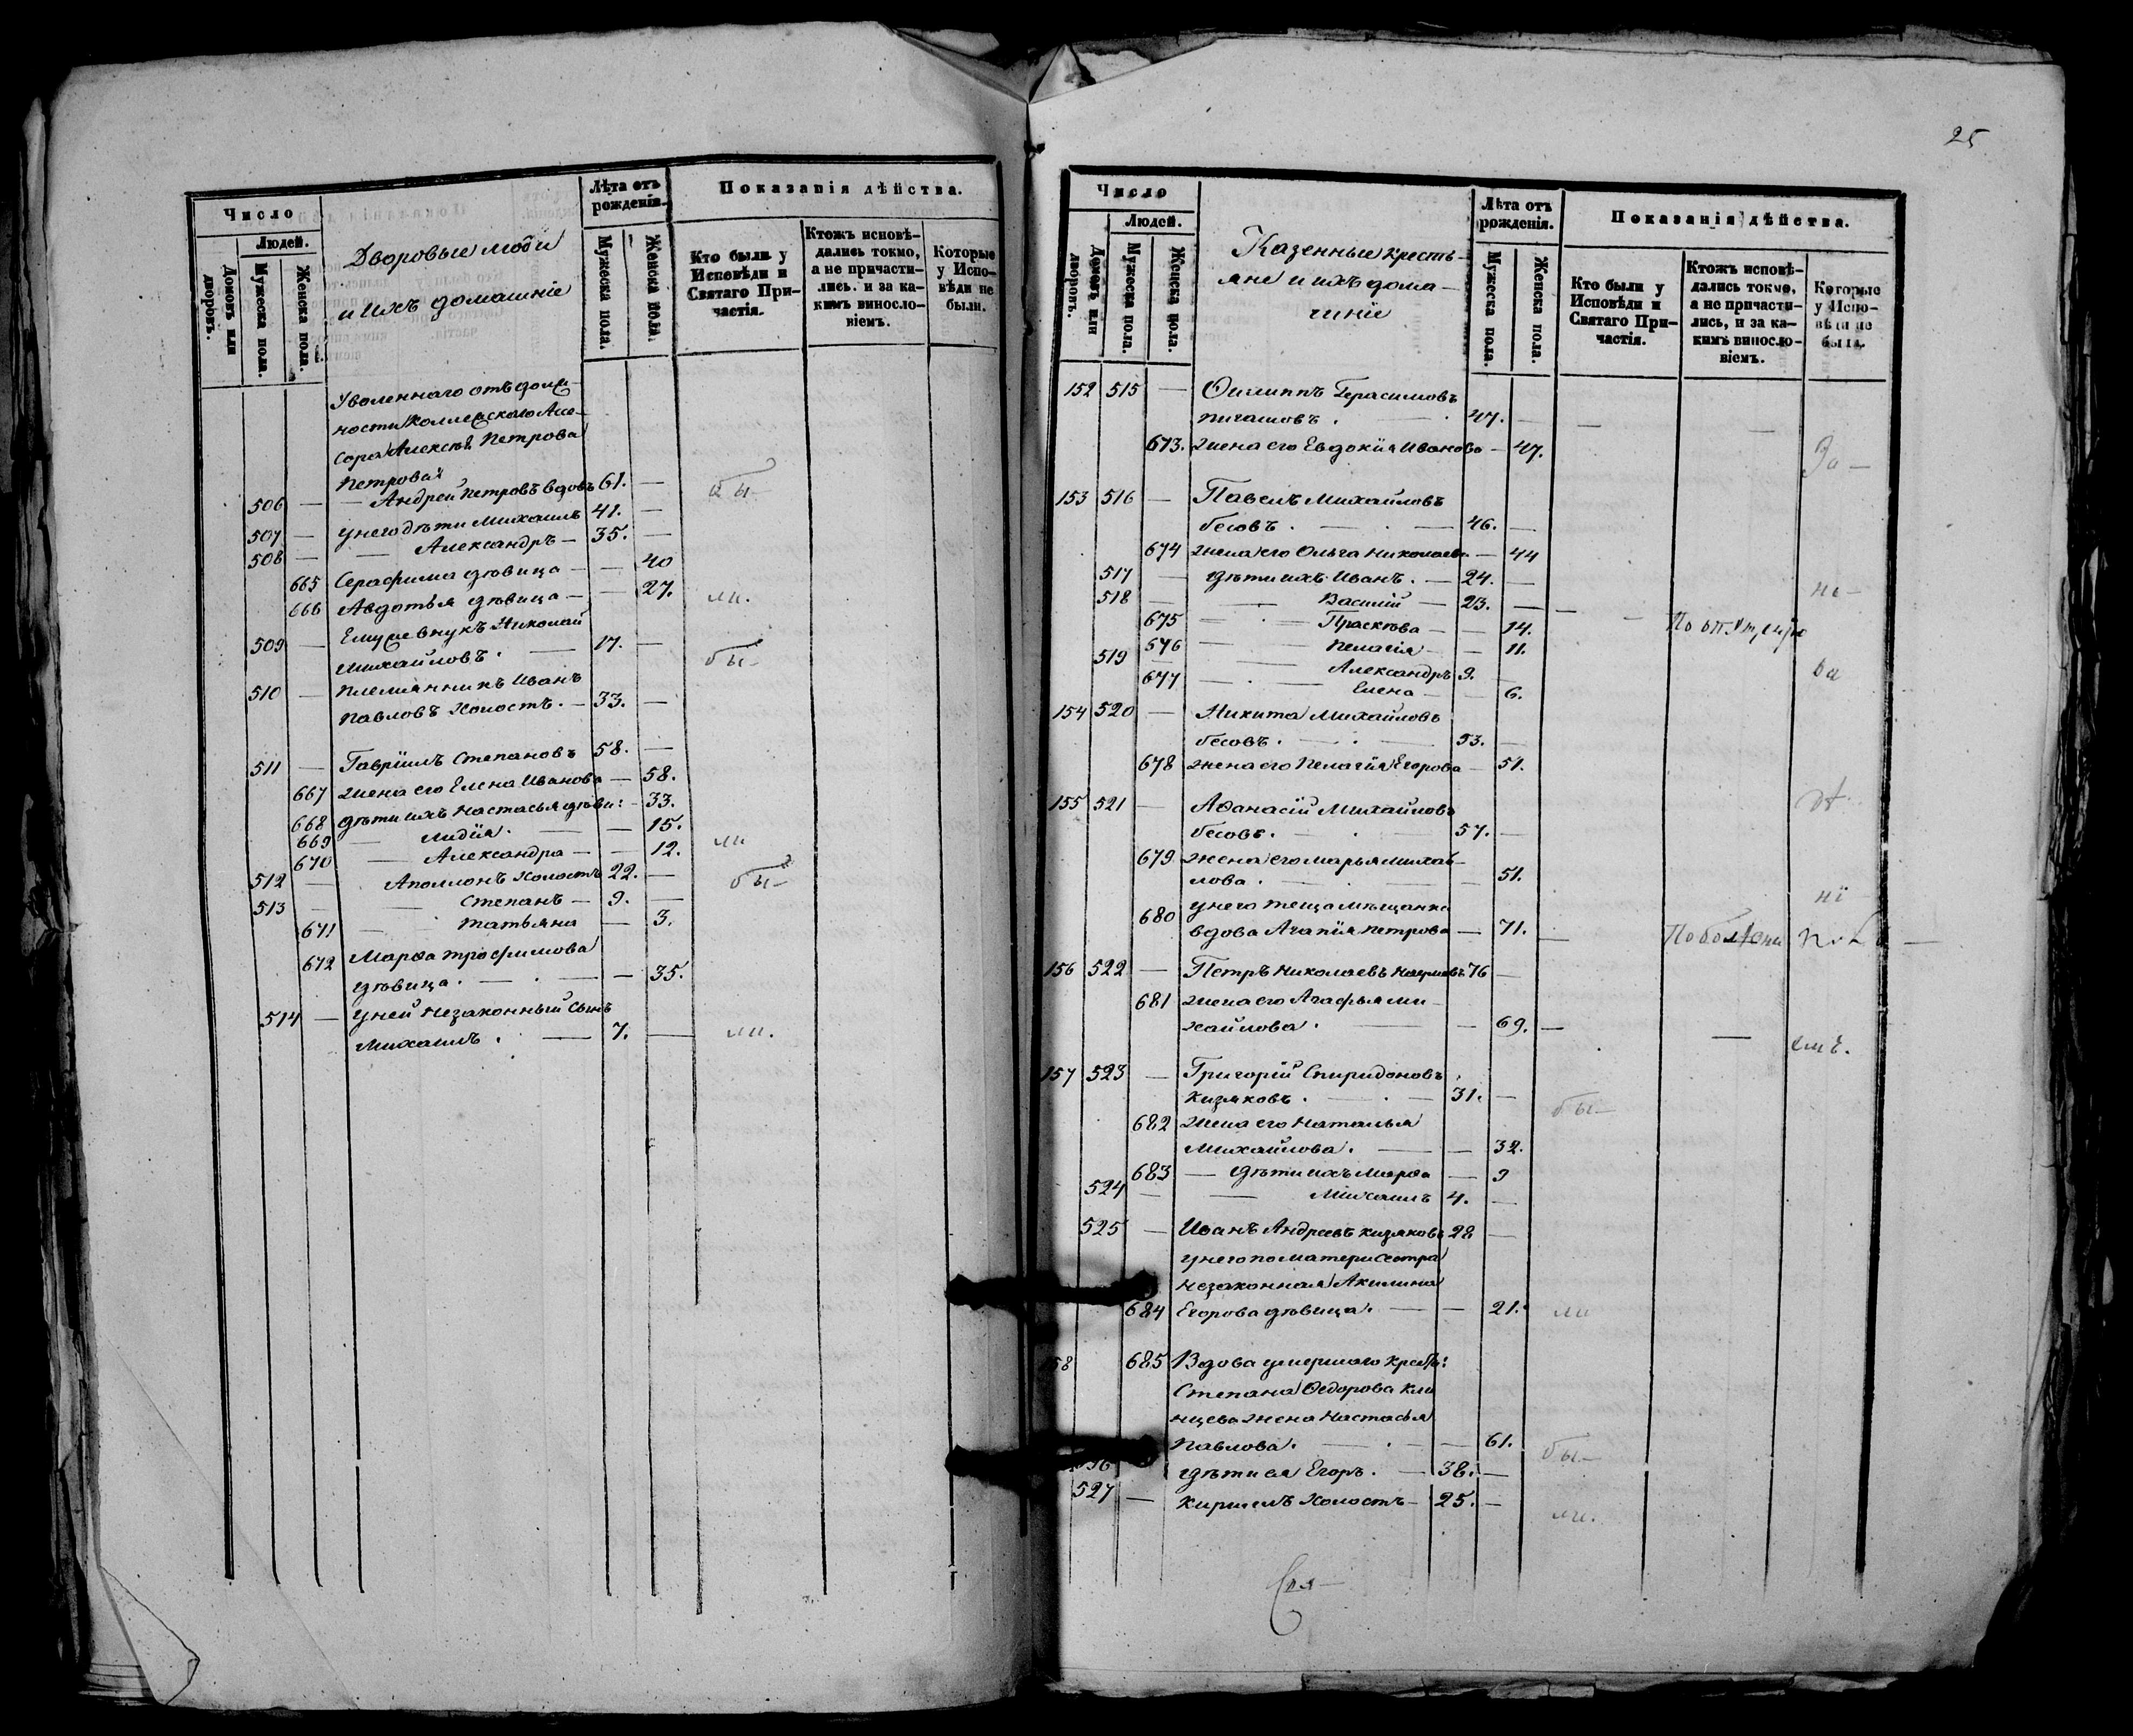 Число
Людей.
Домовъ или дворовъ.
Мужеска пола.
Женска пола.
Дворовые люди
и ихъ домашніе
Лѣта отъ рожденія.
Мужеска пола.
Женска пола.
Показанія дѣйства.
Кто были у Исповѣди и Святаго При-
частія.
Ктожъ исповѣ-
дались токмо,
а не причасти-
лись, и за ка-
кимъ виносло-
віемъ.
Которые
у Испо-
вѣди не
были.
Уволеннаго отъ долж-
ности Коллежскаго Асе-
сора Алексѣя Петрова
Петрова
506 — — Андрей Петровъ вдовъ 61. — бы-
507 — у него дѣти Михаилъ 41. —
508 — — Александръ — 35. —
665 Серафима дѣвица — — 40
666 Авдотья дѣвица — — 27. ли.
509 — Ему же внукъ Николай
Михайловъ. — 17. — бы-
510 — племянникъ Иванъ
Павловъ холостъ. — 33. —
511 — Гавріилъ Степановъ 58. —
667 жена его Елена Иванова — 58.
668 дѣти ихъ Настасья дѣви: — 33.
669 — Лидія. — — 15.
670 — Александра — — 12. ли
512 — Аполлонъ холостъ 22. — бы-
513 — — Степанъ — 9. —
671 — Татьяна — 3.
672 Марѳа Трофимова
дѣвица. — . — — 35.
514 — у ней незаконный сынъ
Михаилъ. — 7. — ли.
25
Число
Людей.
Домовъ или дворовъ.
Мужеска пола.
Женска пола.
Казенные кресть-
яне и ихъ дома-
шніе
Лѣта отъ рожденія.
Мужеска пола.
Женска пола.
Показанія дѣйства.
Кто были у
Исповѣди и
Святаго При-
частія.
Ктожъ исповѣ-
дались токмо,
а не причасти-
лись, и за ка-
кимъ виносло-
віемъ.
Которые
у Испо-
вѣди не
были.
152 515 — Филиппъ Герасимовъ
47. —
673. жена его Евдокія Иванова — 47.
153 516 — Павелъ Михайловъ
бесовъ. — . — 46. —
674 жена его Ольга Николаев. — 44
517 — дѣти ихъ Иванъ. — 24. —
518 — — Василій — 23. — не-
675 — — Прасковья — — 14. По отлуч
676 — — Пелагія — — 11.
519 — — Александръ 9. —
677 — — Елена — — 6.
154 520 — Никита Михайловъ
бесовъ. — . — 53. —
678 жена его Пелагія Егорова — 51.
155 521 — Аѳанасій Михайловъ
бесовъ. — . — 57. —
679 жена его Марья Михай-
лова. — . — — 51.
у него теща мѣщанка
680 вдова Агапія Петрова — 71. —
156 522 — Петръ Николаевъ 76 —
681 жена его Агафья Ми-
хайлова. — — 69. —
157 523 — Григорій Спиридоновъ
Кизяковъ. — . — 31. — бы-
682 жена его Наталья
Михайлова. — — 32.
683 — дѣти ихъ Марѳа — 9
524 — — Михаилъ 4. —
525 — Иванъ Андреевъ Кизяковъ 28 —
у него по матери сестра
незаконная Акилина
684 Егорова дѣвица. — — 21. ли
58 685 Вдова умершаго крест:
Степана Ѳедорова Кли
нцева жена Настасья
Павлова. — . — — 61. бы-
дѣти ея Егоръ. — 38. —
527 — Кириллъ холостъ — 25. — ли.